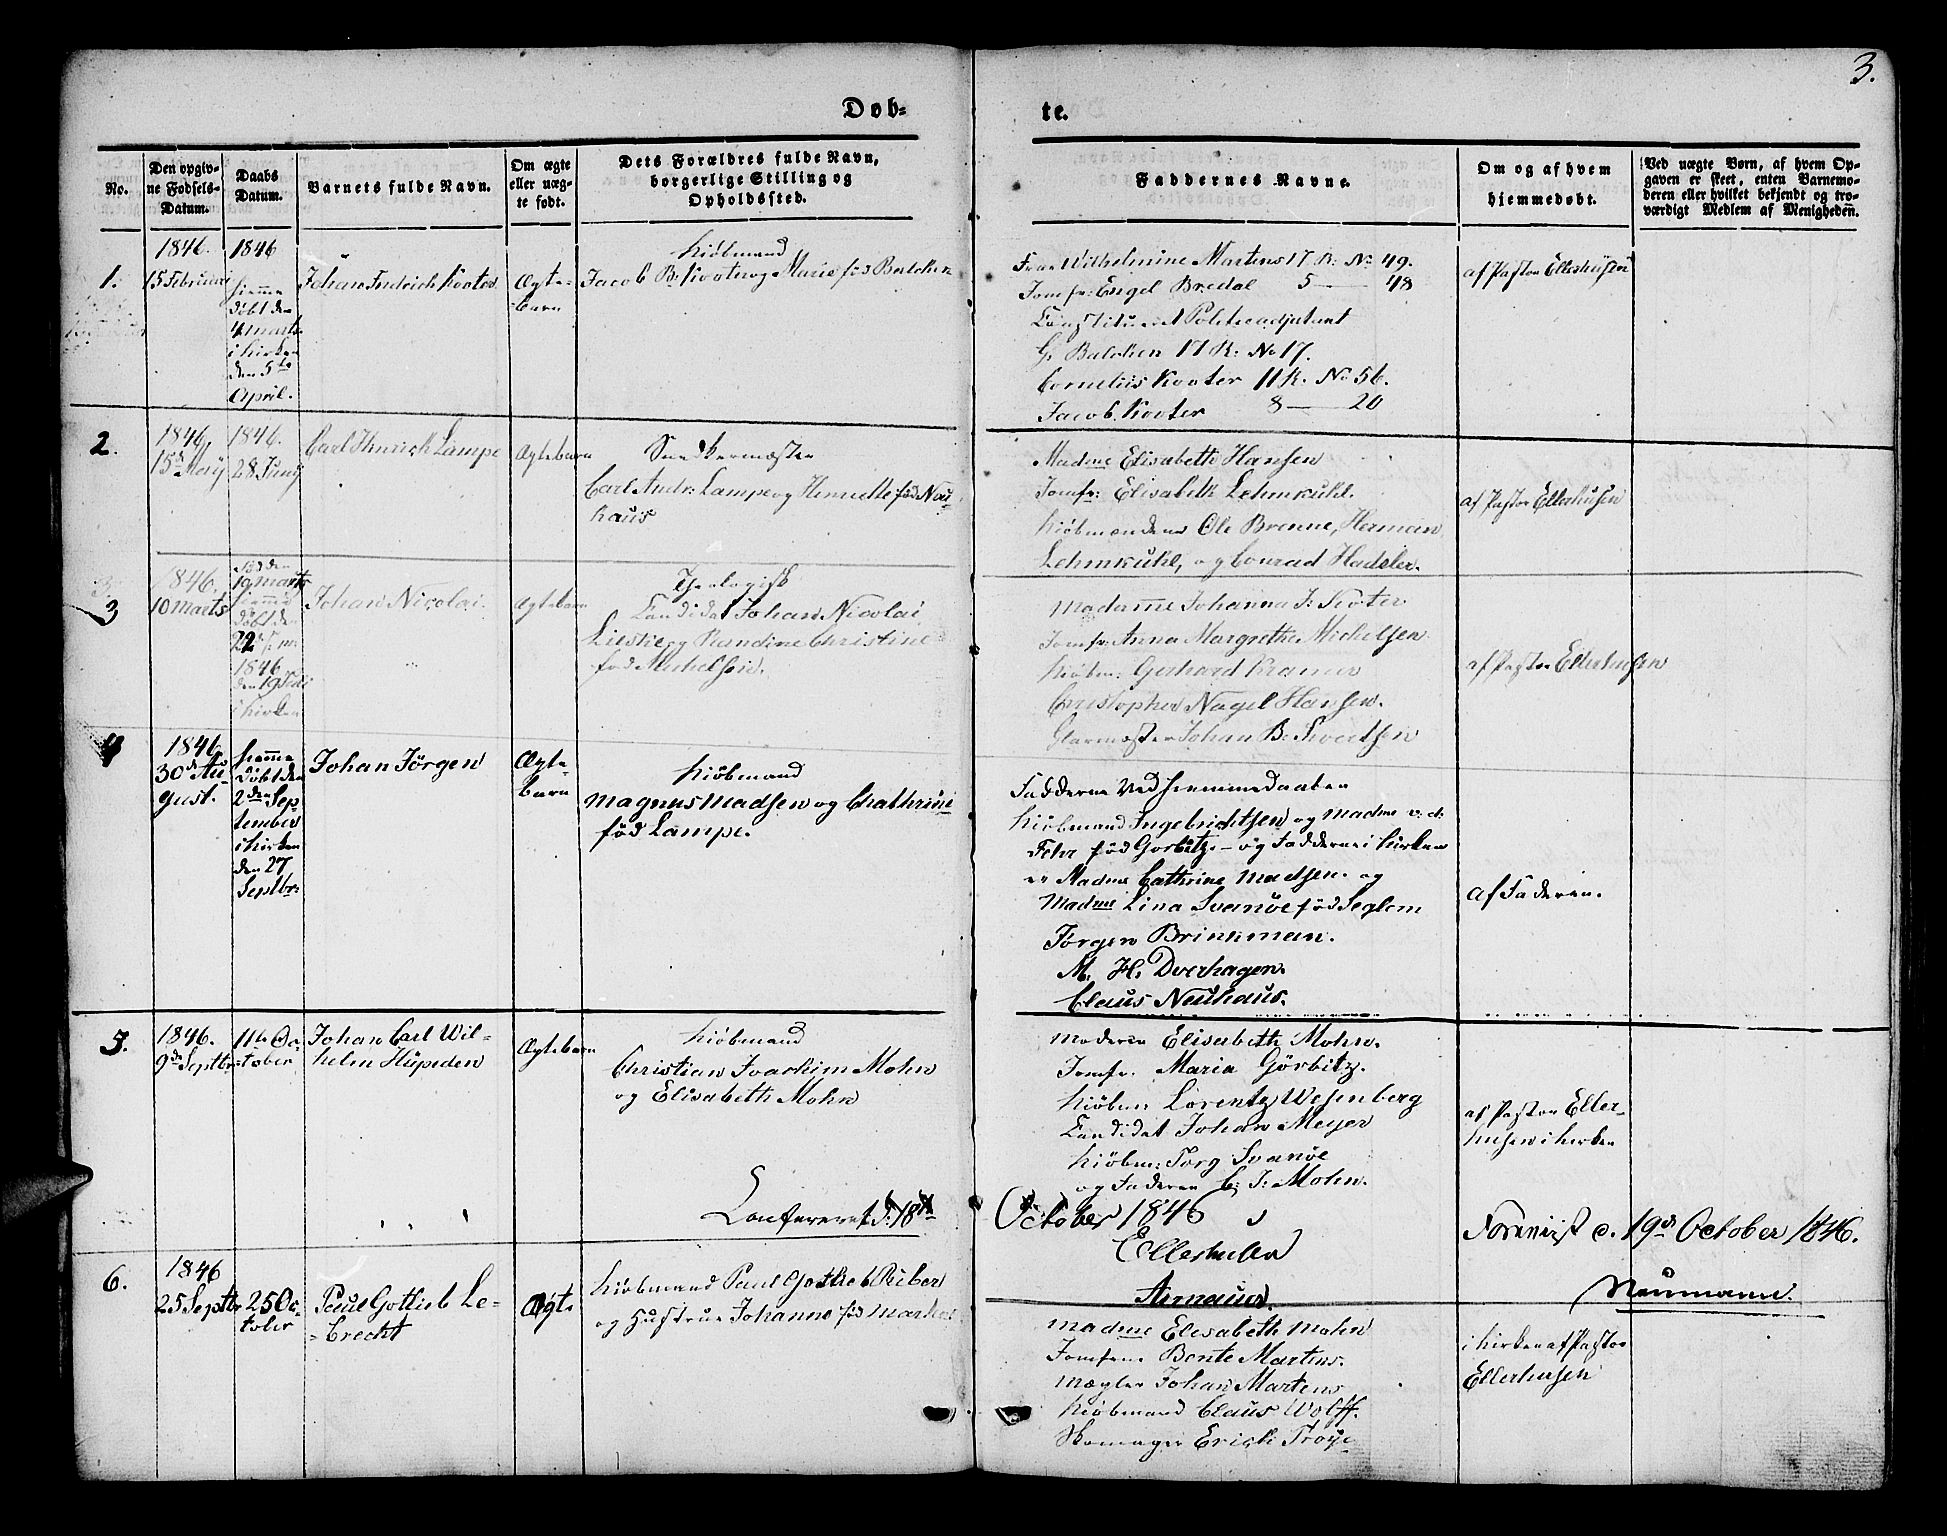 3.
Døb-
te.
No.
Den opgiv-
ne Fødsels-
Datum.
Daabs
Datum.
Barnets fulde Navn.
Om ægte
eller uæg-
te født.
Dets Forældres fulde Navn,
borgerlige Stilling og
Opholdssted.
Faddernes Navne.
Om og af hvem
hjemmedøbt.
Ved uægte Børn, af hvem Op-
gaven er skeet, enten Barnemo-
deren eller hvilket bekjendt og tro-
værdigt Medlem af Menigheden.
1.
1846.
15 Februar
1846
hjemme
døbt den
4 Marts
i Kirken
den 5te
April.
Johan Fredrich Kooter
Ægte-
barn
Kiöbmand
Jacob B. Kooter og Marie född Balchen
Frue Wilhelmine Martens 17 R: No 49.
Jomfr: Engel Bredal 5 — 48
Constitueret Politieadjutant
G. Balchen 17 R: No 17.
Cornelius Kooter 11 R. No 56.
Jacob Kooter 8 — 20
af Pastor Ellerhusen
2.
1846.
15de Maÿ
1846.
28 Junÿ
Carl Hinrich Lampe
Ægtebarn
Snedkermester
Carl Andr: Lampe og Henriette född Neu-
haus
Madme Elisabeth Hansen
Jomfr: Elisabeth Lehmkuhl.
Kiöbmændene Ole Bronne, Herman
Lehmkuhl, og Conrad Hadeler.
af Pastor Ellerhusen
3
1846.
10 Marts
född den
10 Marts
hjemme
döbt den
22
1846
den 19 Juli
i Kirken
Johan Nicolai
Ægtebarn
Theologisk
Candidat Johan Nicolai
og Randine Christine
född Michelsen.
Madame Johanna J: Kooter
Jomfr: Anna Margrethe Michelsen
Kiöbm: Gerhard Kramer
Christopher Nagel Hansen.
Glarmester Johan B. Sivertsen
af Pastor Ellerhusen
4
1846
30de Au-
gust.
hjemme
döbt den
2den Sep-
tember
i Kirken
den 27
Septbr:
Johan Jörgen
Ægte-
barn
Kiöbmand
Magnus Madsen og Chathrine
född Lampe.
Fadderne ved Hjemmedaaben
Kiöbmand Ingebrichtsen og Madme v. d.
Fehr född Görbitz - og Fadderne i Kirken
er Madme Cathrine Madsen. og
Madme Lina Svanöe född Seglem
Jörgen Brinkman.
M. H. Dverhagen.
Claus Neuhaus.
af Faderen.
5.
1846.
9de Septbr
11te Oc-
tober
Johan Carl Wil-
helm Hüpeden
Ægtebarn
Kiöbmand
Christian Joachim Mohn
og Elisabeth Mohn
Moderen Elisabeth Mohn.
Jomfr. Maria Görbitz.
Kiöbm: Lorentz Wesenberg
Candidat Johan Meyer
Kiöbm: Jörg Svanöe
og Faderen C. J. Mohn.
af Pastor Eller-
husen i Kirken
Confereret d: 18de
October 1846
Ellerhusen
Arnaus.
Foreviist d. 19de October 1846.
Neumann.
6.
1846
25 Septbr
25 Oc-
tober
Paul Gotlieb Le-
-brecht
Ægte
Kiöbmand Paul Gotlieb Riber
og Hustrue Johanne född Markus
Madme Elisabeth Mohn
Jomfrue Bente Martens.
Mægler Johan Martens
Kiöbmand Claus Wolff.
Skomager Erich Troye
i Kirken af Pastor
Ellerhusen